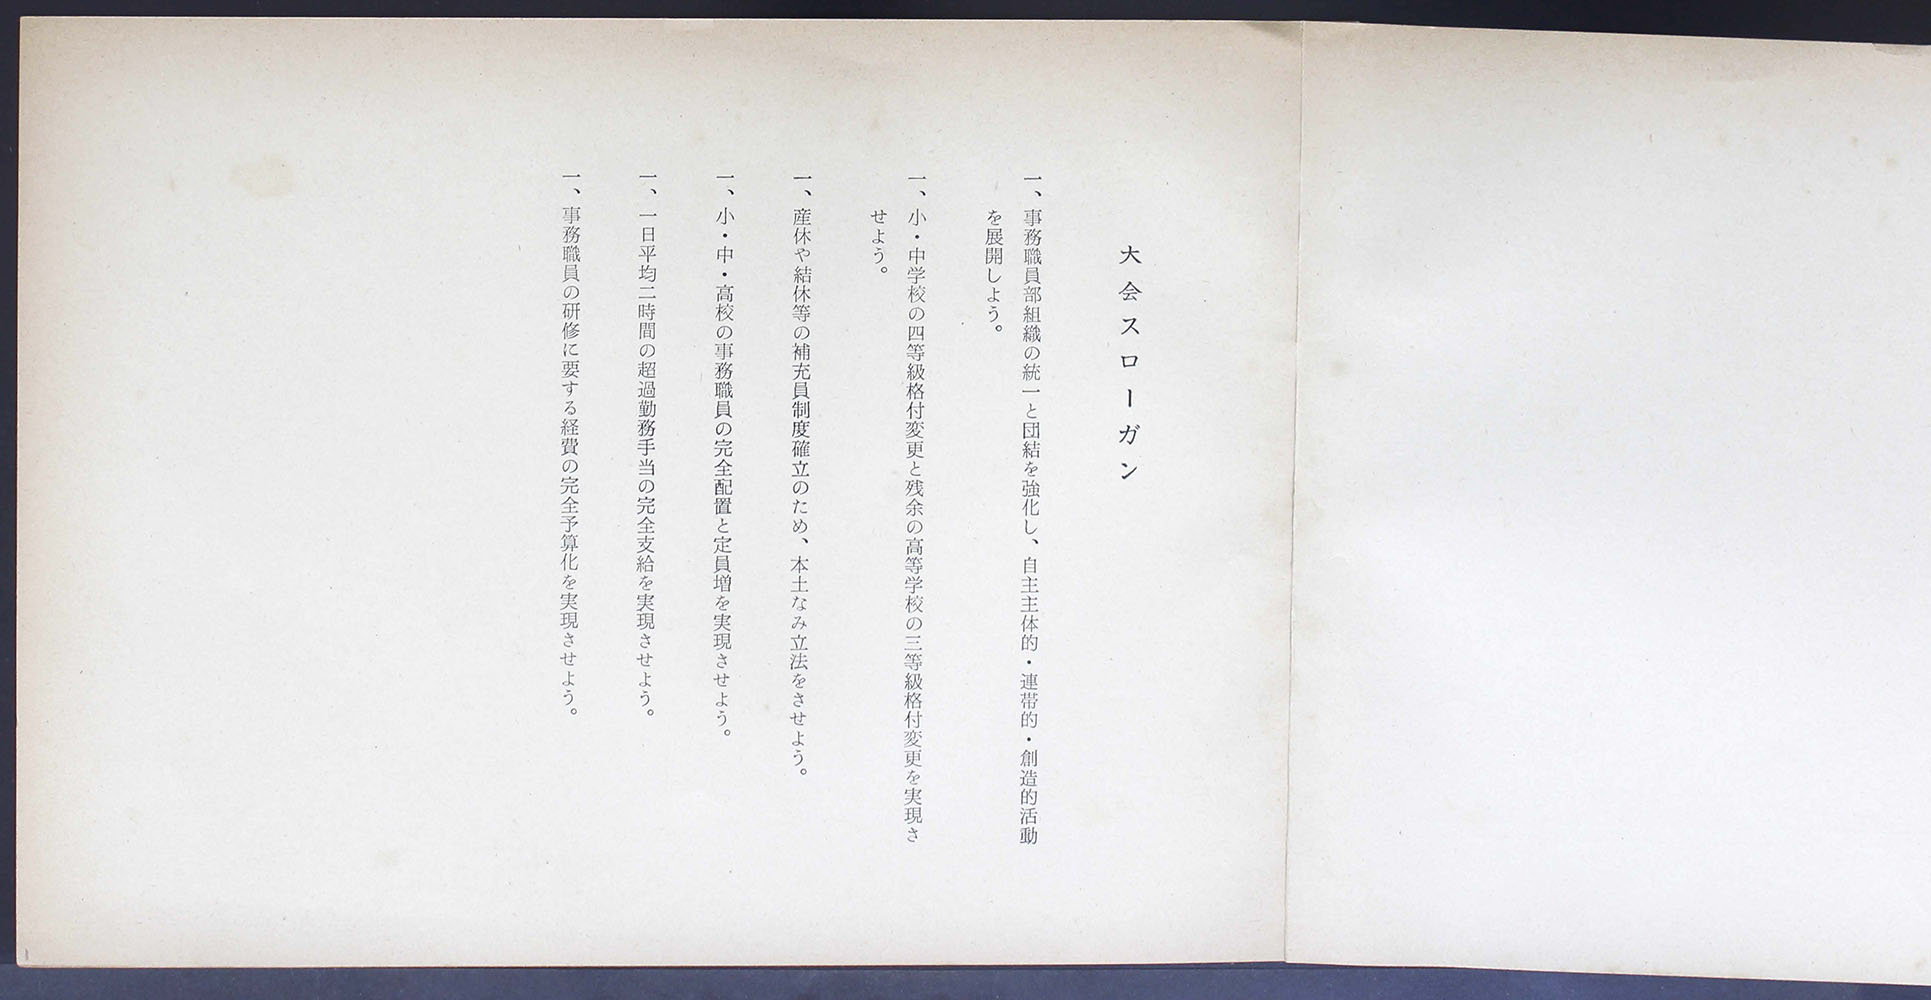 大会スローガン
一、事務職員部組織の統一と団結を強化し、自主主体的・連帯的・創造的活動
を展開しよう。
一、小・中学校の四等級格付変更と残余の高等学校の三等級格付変更を実現さ
せよう。
一、産休や結休等の補充員制度確立のため、本土なみ立法をさせよう。
一、小・中・高校の事務職員の完全配置と定員増を実現させよう。
一、一日平均二時間の超過勤務手当の完全支給を実現させよう。
一、事務職員の研修に要する経費の完全予算化を実現させよう。